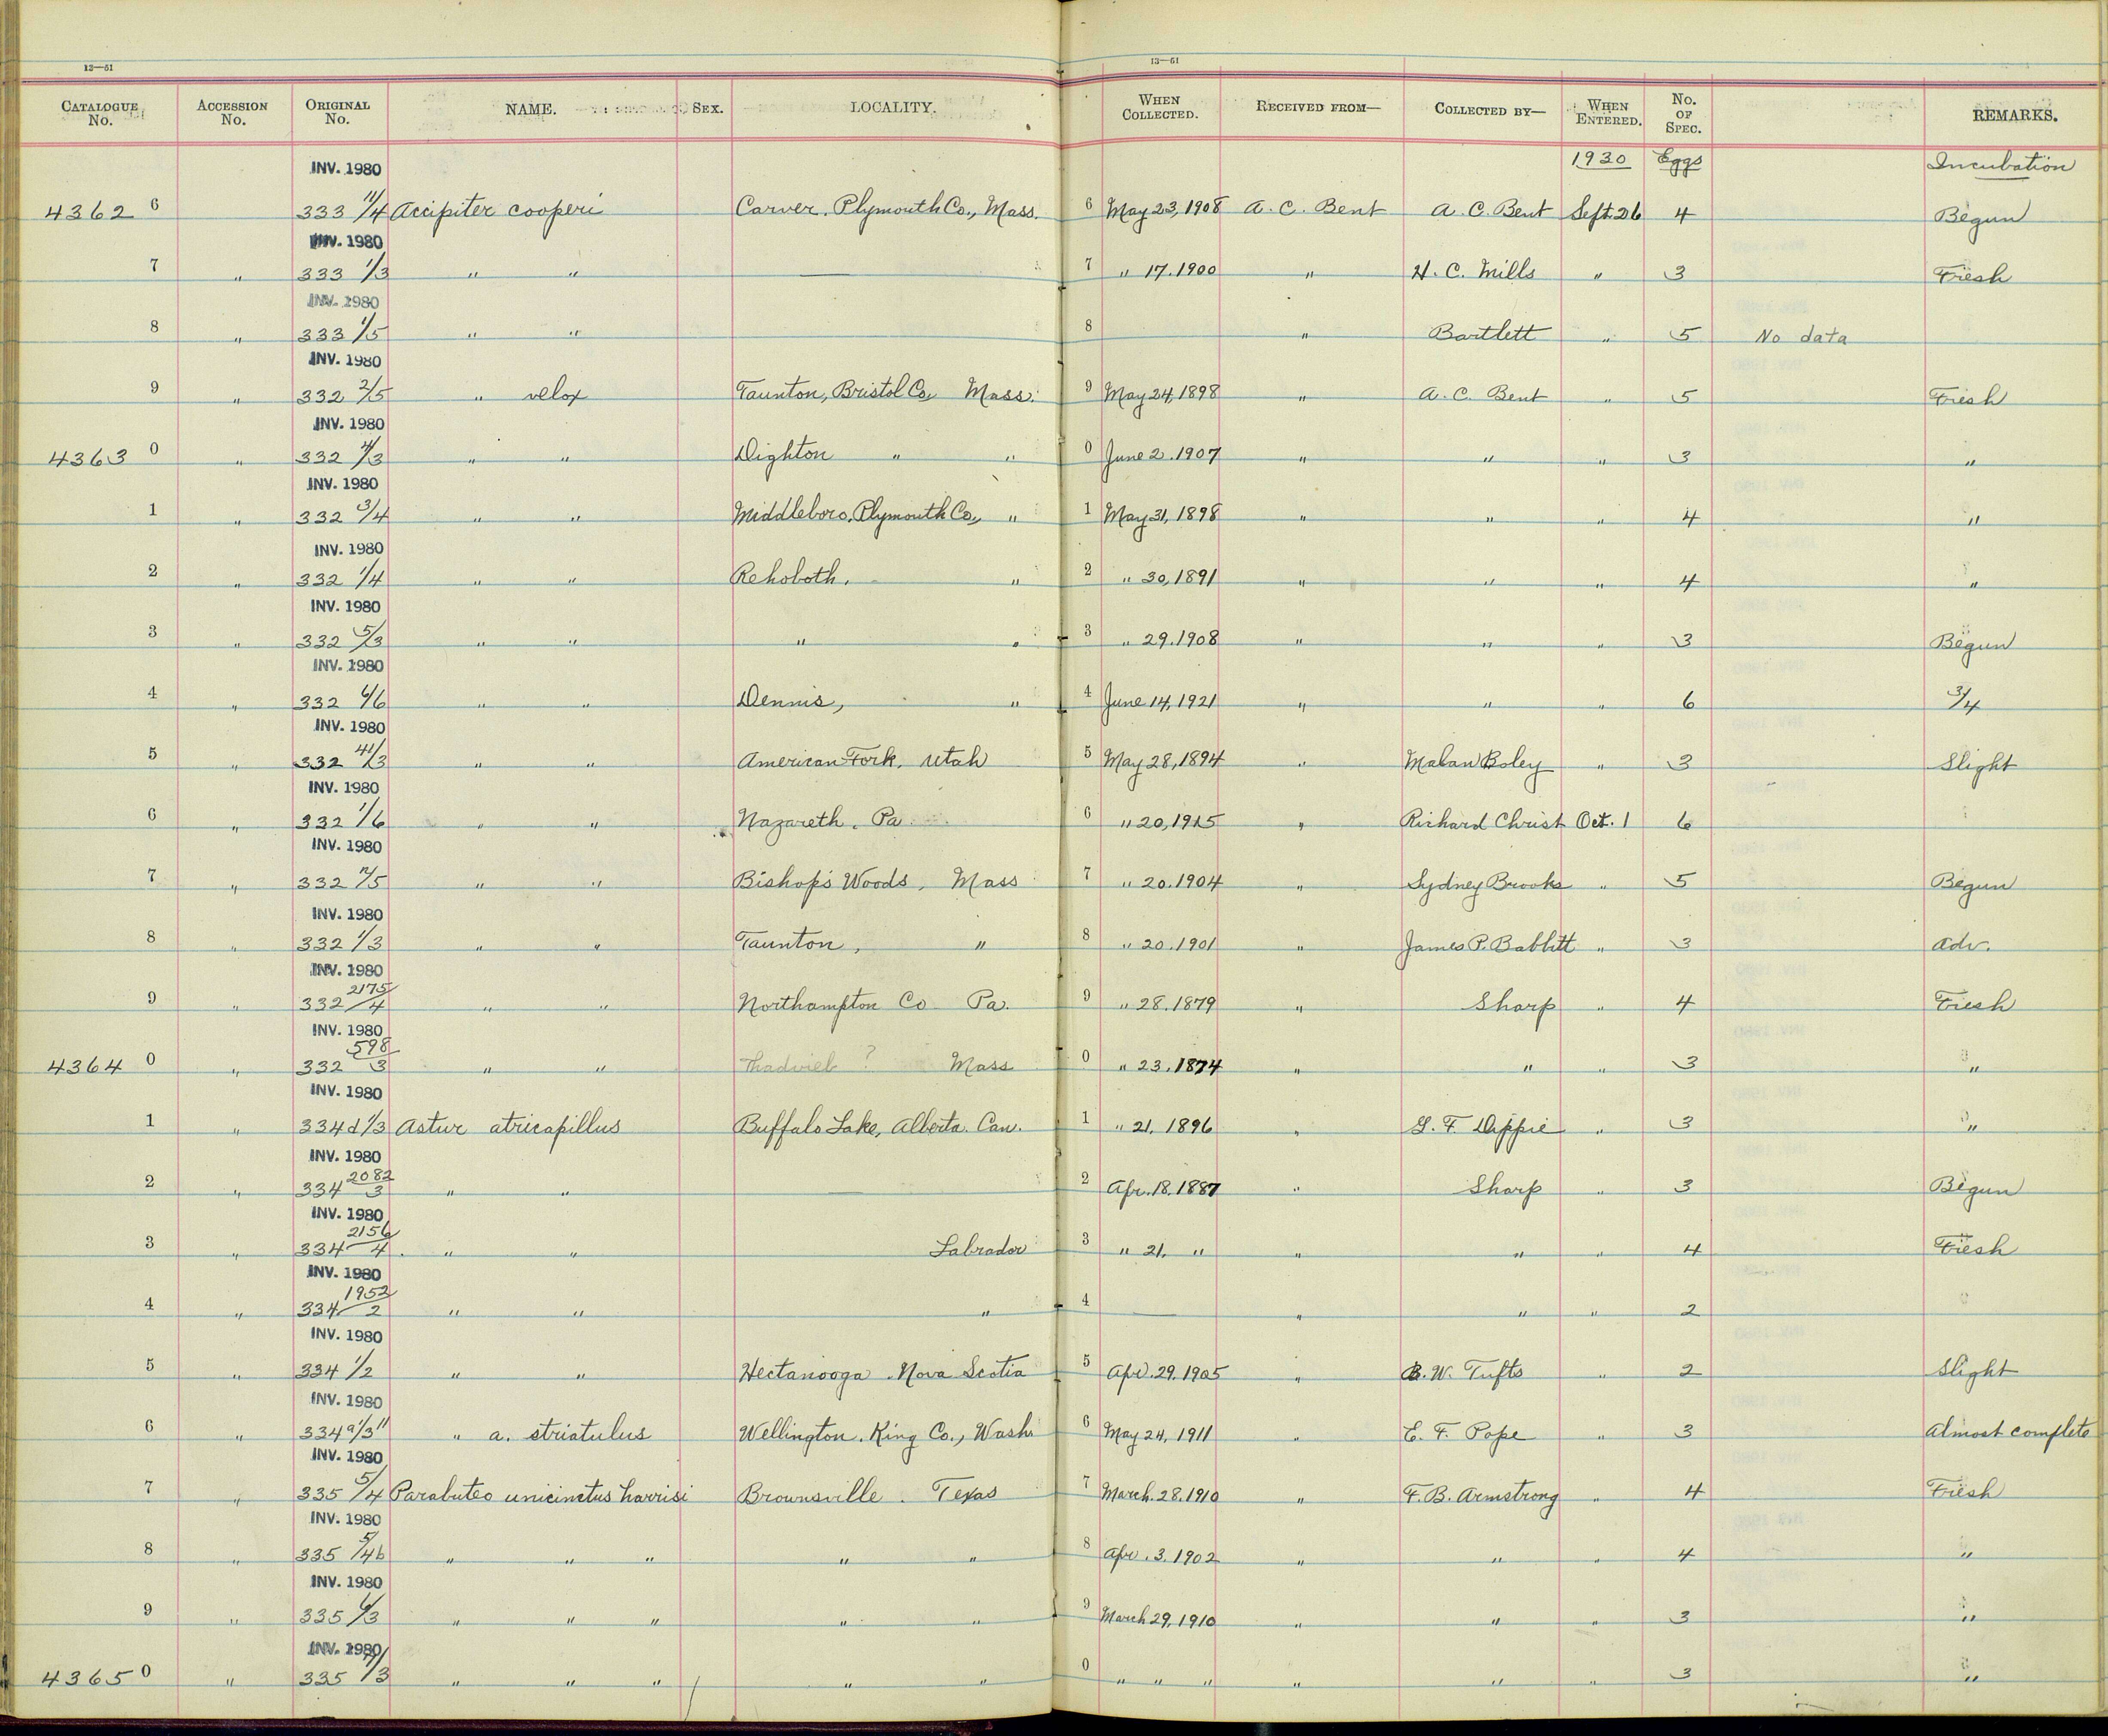 13—51 13—51
CATALOGUE No. ACCESSION No. ORIGINAL No. NAME. SEX. LOCALITY. WHEN COLLECTED. RECEIVED FROM— COLLECTED BY— WHEN ENTERED. No. OF SPEC. REMARKS.
INV. 1980 1930 Eggs Incubation
4362 6 333 11/4 Accipiter cooperi Carver, Plymouth Co., Mass. 6 May 23, 1908 A. C. Bent A. C. Bent Sept. 26 4 Begun
INV. 1980
7 " 333 1/3 " " — 7 " 17. 1900 " H. C. Mills " 3 Fresh
INV. 1980
8 " 333 1/5 " " 8 " Bartlett " 5 No data
INV. 1980
9 " 332 2/5 " velox Taunton, Bristol Co., Mass. 9 May 24, 1898 " A. C. Bent " 5 Fresh
INV. 1980
4363 0 " 332 4/3 " " Dighton " " 0 June 2. 1907 " " " 3 "
INV. 1980
1 " 332 3/4 " " Middleboro, Plymouth Co., " 1 May 31, 1898 " " " 4 "
INV. 1980
2 " 332 1/4 " " Rehoboth, " 2 " 30, 1891 " " " 4 "
INV. 1980
3 " 332 5/3 " " " " 3 " 29. 1908 " " " 3 Begun
INV. 1980
4 " 332 6/6 " " Dennis, " 4 June 14, 1921 " " " 6 3/4
INV. 1980
5 " 332 41/3 " " American Fork, Utah 5 May 28, 1894 " Malan Boley " 3 Slight
INV. 1980
6 " 332 1/6 " " Nazareth, Pa. 6 " 20, 1915 " Richard Christ Oct. 1 6
INV. 1980
7 " 332 /5 " " Bishop's Woods, Mass 7 " 20. 1904 " Sydney Brooks " 5 Begun
INV. 1980
8 " 332 1/3 " " Taunton, " 8 " 20. 1901 " James P. Babbitt " 3 adv.
INV. 1980
9 " 332 2175/4 " " Northampton Co Pa. 9 " 28. 1879 " Sharp " 4 Fresh
INV. 1980
4364 0 " 332 598/3 " " ? Mass 0 " 23. 1874 " " " 3 "
INV. 1980
1 " 334d 1/3 Astur atricapillus Buffalo Lake, Alberta. Can. 1 " 21, 1896 " G. F. Dippie " 3 "
INV. 1980
2 " 334 2082/3 " " — 2 Apr. 18. 1887 " Sharp " 3 Begun
INV. 1980
3 " 334 2156/4 " " Labrador 3 " 21. " " " " 4 Fresh
INV. 1980
4 " 334 1952/2 " " " 4 — " " " 2
INV. 1980
5 " 334 1/2 " " Hectanooga, Nova Scotia 5 Apr. 29. 1905 " B. W. Tufts " 2 Slight
INV. 1980
6 " 334a 1/3 " " a. striatulus Wellington, King Co., Wash. 6 May 24, 1911 " E. F. Pope " 3 Almost complete
INV. 1980
7 " 335 5/4 Parabuteo unicinctus harrisi Brownsville. Texas 7 March. 28. 1910 " F. B. Armstrong " 4 Fresh
INV. 1980
8 " 335 5/4b " " " " " 8 Apr. 3. 1902 " " " 4 "
INV. 1980
9 " 335 6/3 " " " " " 9 March 29, 1910 " " " 3 "
INV. 1980
4365 0 " 335 /3 " " " " " 0 " " " " " " 3 "